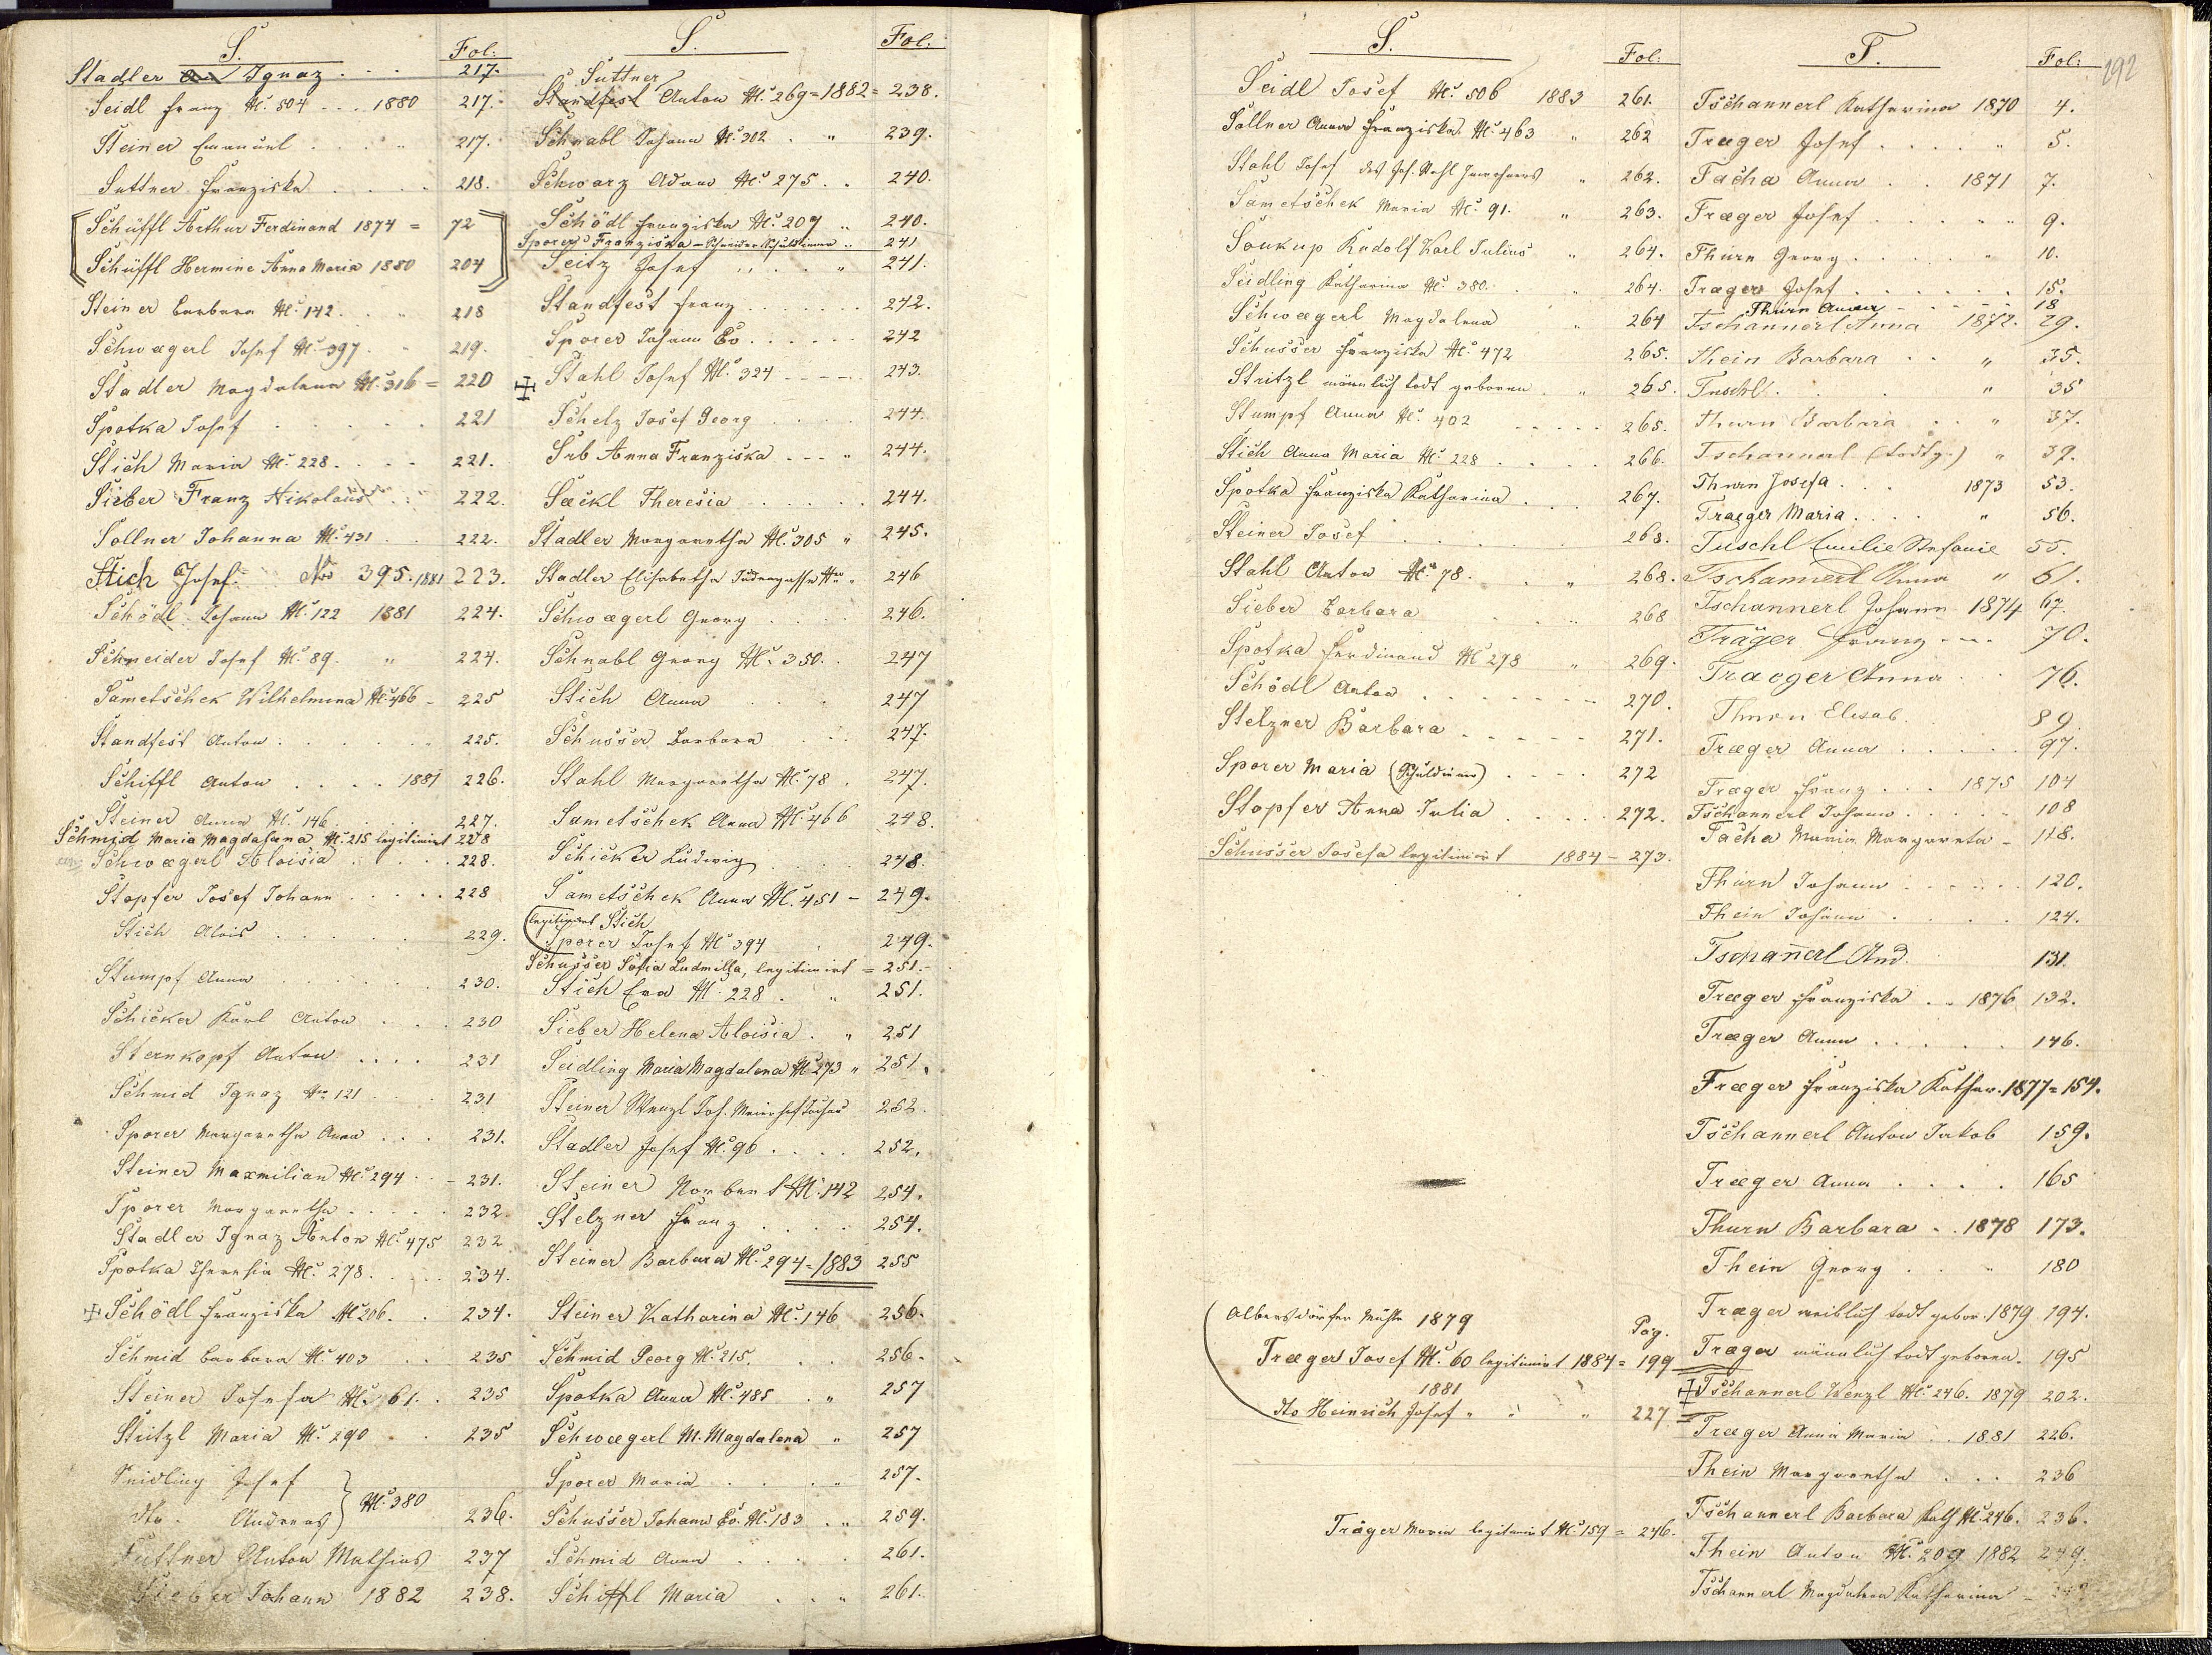 S.
Fol:
Stadler Ignaz . . . 217.
Seidl Franz No. 504 . . . 1880 217.
Steiner Emanuel . . . " 217.
Suttner Franziska . . . . 218.
Schüffl Arthur Ferdinand 1874 = 72
Schüffl Hermine Anna Maria 1880 204
Steiner Barbara No. 142 . . " 218
Schwægerl Josef No. 397 . . 219.
Stadler Magdalena No. 316 = 220
Spotka Josef . . . . . 221
Stich Maria No. 228 . . . . 221.
Sieber Franz Nikolaus . . 222.
Sollner Johanna No. 431 . . 222.
Stich Josef. No 395. 1881 223.
Schödl Johann No. 122 1881 224.
Schneider Josef No. 89. " 224.
Sametschek Wilhelmina No. 466 - 225
Standfest Anton . . . . . 225.
Schiffl Anton . . . . 1881 226.
Steiner Anna No. 146 . . . 227.
Schmid Maria Magdalena No. 215 legitimirt 228
Schwægerl Aloisia . . . . 228.
Stopfer Josef Johann . . . . 228
Stich Alois . . . . . 229.
Stumpf Anna . . . . . 230.
Schicker Karl Anton . . . 230
Sternkopf Anton . . . . 231
Schmid Ignaz No 121 . . . 231
Sporer Margaretha Anna . . . 231.
Steiner Maxmilian No. 294 . . - 231.
Sporer Margaretha . . . . . 232.
Stadler Ignaz Anton No. 475 232
Spotka Theresia No. 278 . . . . 234.
Schödl Franziska No 206. . . 234.
Schmid Barbara No. 403 . . 235
Steiner Josefa No. 61. . 235
Stritzl Maria No. 290 . . 235
Seidling Josef
dto. Andreas } No. 380 236.
Suttner Anton Mathias 237
Sieber Johann 1882 238.
S.
Fol:
Suttner
Standfest Anton No. 269 = 1882 = 238.
Schnabl Johann No. 302 . " 239.
Schwarz Adam No. 275 . . 240.
Schödl Franziska No. 207 " 240.
Sporer Franziska - Schneider Schuldiener " 241
Seitz Josef . . . . " 241.
Standfest Franz . . . . . . 242.
Sporer Johann Ev . . . . . . 242
Stahl Josef No. 324 - - - - . 243.
Schelz Josef Georg . . . 244.
Srb Anna Franziska - - - " 244.
Sackl Theresia . . . . . 244.
Stadler Margaretha No. 305 " 245.
Stadler Elisabetha Judengasse No " 246
Schwægerl Georg . . . . 246.
Schnabl Georg No. 350 . . 247
Stich Anna . . . . 247
Schusser Barbara . . . 247.
Stahl Margaretha No. 78 . 247.
Sametschek Anna No. 466 248.
Schicker Ludwig . . . 248.
Sametschek Anna No. 451 - 249.
legitimirt Stich
Sporer Josef No 394 . 249.
Schusser Sofia Ludmilla, legitimirt = 251.-
Stich Eva No. 228 . " 251.
Sieber Helena Aloisia . " 251
Seidling Maria Magdalena No 273 " 251.
Steiner Wenzl Jos. 252.
Stadler Josef No. 96 . . . . 252.
Steiner Norbert No. 142 254.
Stelzner Franz . . . . 254.
Steiner Barbara No. 294 = 1883 255
Steiner Katharina No. 146 256.
Schmid Georg No. 215. . . 256.
Spotka Anna No. 485 . " 257
Schwægerl M. Magdalena " 257
Sporer Maria . . . . . 257.
Schusser Johann Ev. No. 183 . " 259.
Schmid Anna . . . . . 261.
Schiffl Maria . . " 261.
S.
Fol:
Seidl Josef No. 506 1883 261.
Sollner Anna Franziska No. 463 " 262
Stahl Josef des Jos. Stahl Inwohners " 262.
Sametschek Maria No. 91. " 263.
Soukup Rudolf Karl Julius " 264.
Seidling Katharina No. 380. . " 264.
Schwægerl Magdalena " 264
Schusser Franziska No. 472 265.
Stritzl männlich todt geboren . " 265.
Stumpf Anna No. 402 - - - - - 265.
Stich Anna Maria No. 228 . . . . 266.
Spotka Franziska Katharina . . . 267.
Steiner Josef . . . . . . 268.
Stahl Anton No. 78. . . " 268.
Sieber Barbara . . . " 268
Spotka Ferdinand No 278 " 269.
Schödl Anton . . . . . . - 270.
Stelzner Barbara . . . . . 271.
Sporer Maria (Schuldiener) . . . . 272
Stopfer Anna Julia . . . . . 272.
Schusser Josefa legitimirt 1884 - 273.
Albersdörfer Mühle 1879
Pag.
Træger Josef No. 60 legitimirt 1884 = 199
1881
dto Heinrich Josef " " " 227.
Träger Maria legitimirt No. 159 = 246.
T.
Fol:
292
Tschannerl Katharina 1870 4.
Træger Josef . . . . " 5.
Tacha Anna . . 1871 7.
Træger Josef . . . . " " 9.
Thürn Georg . . . . " 10.
Træger Josef . . . . . . 15.
Thürn Anna - - - - - 18
Tschannerl Anna 1872. 29.
Thein Barbara . . " 35.
Tuschl . . . " 35
Thurn Barbara . . " 37.
Tschannerl (todtg.) " 39.
Thurn Josefa . . . 1873 53.
Traeger Maria . . . . " 56.
Tuschl Emilie Stefanie 55.
Tschannerl Anna " 61.
Tschannerl Johann 1874 67.
Träger Franz - - - . 70.
Traeger Anna . . . 76.
Thurn Elisab. . . 89.
Træger Anna . . . . . 97.
Træger Franz . . . 1875 104
Tschannerl Johann . . . . . 108
Tacha Maria Margareta - 118.
Thürn Johann . . . . . . 120.
Thein Johann . . . . . 124.
Tschan̄erl And. 131.
Træger Franziska . . 1876 132.
Træger Anna . . . . . 146.
Træger Franziska Kathar. 1877 = 154.
Tschannerl Anton Jakob 159.
Træger Anna . . . . 165
Thurn Barbara . . 1878 173.
Thein Georg . . " 180
Træger weiblich todt gebor. 1879 194.
Træger männlich todt geboren. 195
Tschannerl Wenzl No. 246. 1879 202.
Træger Anna Maria . . 1881 226.
Thein Margaretha . . . 236
Tschannerl Barbara Kath No. 246. 236.
Thein Anton No. 209 1882 249.
Tschannerl Magdalena Katharina -